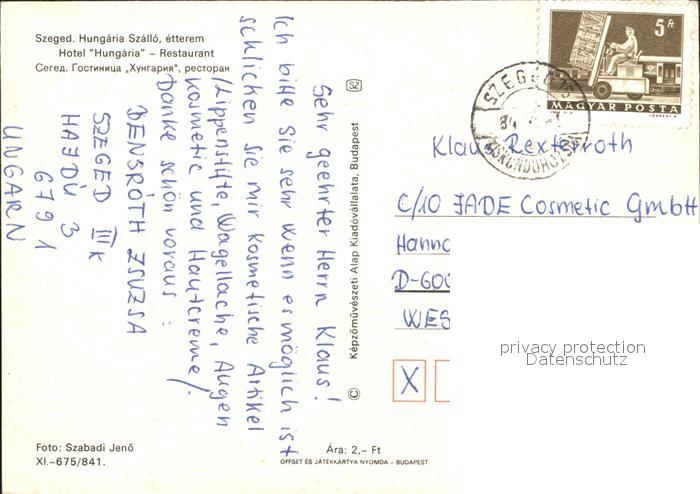 Szeged. Hungária Szálló, étterem
Hotel "Hungária" – Restaurant
Сегед. Гостиница „Хунгария", ресторан
Sehr geehrter Herrn Klaus!
Ich bitte Sie sehr wenn es möglich ist
schlichen sie mir kosmetische Artikel
/Lippenstifte, Wagellache, Augen
kosmetic und Hautcreme/.
Danke schön voraus:
BENSRÓTH ZSUZSA
SZEGED III k
HAJDÚ 3
6791
UNGARN
Képzőművészeti Alap Kiadóvállalata, Budapest
©
5 Ft
MAGYAR POSTA
SZEGED
84
Klaus Rexterroth
C/10 JADE Cosmetic GmbH
Hanno
D-600
WES
X
privacy protection
Datenschutz
Foto: Szabadi Jenő
XI.–675/841.
Ára: 2,– Ft
OFFSET ÉS JÁTÉKKÁRTYA NYOMDA – BUDAPEST